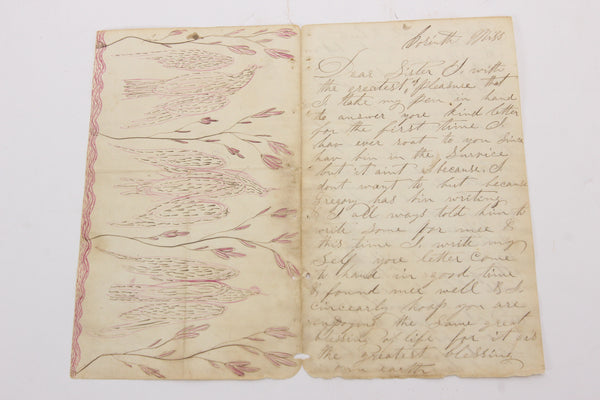 Corinth Miss
Dear Sister I with
the greatest of pleasure that
I take my pen in hand
to answer youre kind letter
for the first time I
hav ever roat to you since
hav bin in the survice
but it aint because I
dont want to but because
Gregory has bin writing
& I all ways told him to
write some for mee &
this time I write my
self youre letter come
to hand in good time
& found mee well & I
cincearly hoap you are
enjoying the same great
blessing of life for it is
the greatest blessing
on earth